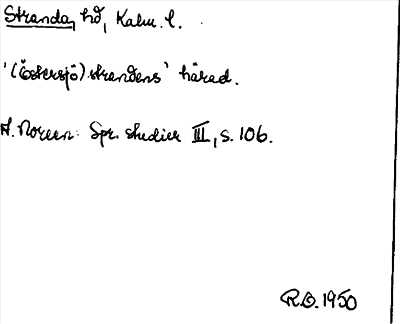 Stranda, hd, Kalm. l.
'(Östersjö)strandens' härad.
A. Noreen: Spr. studier III, s. 106.
R.O. 1950